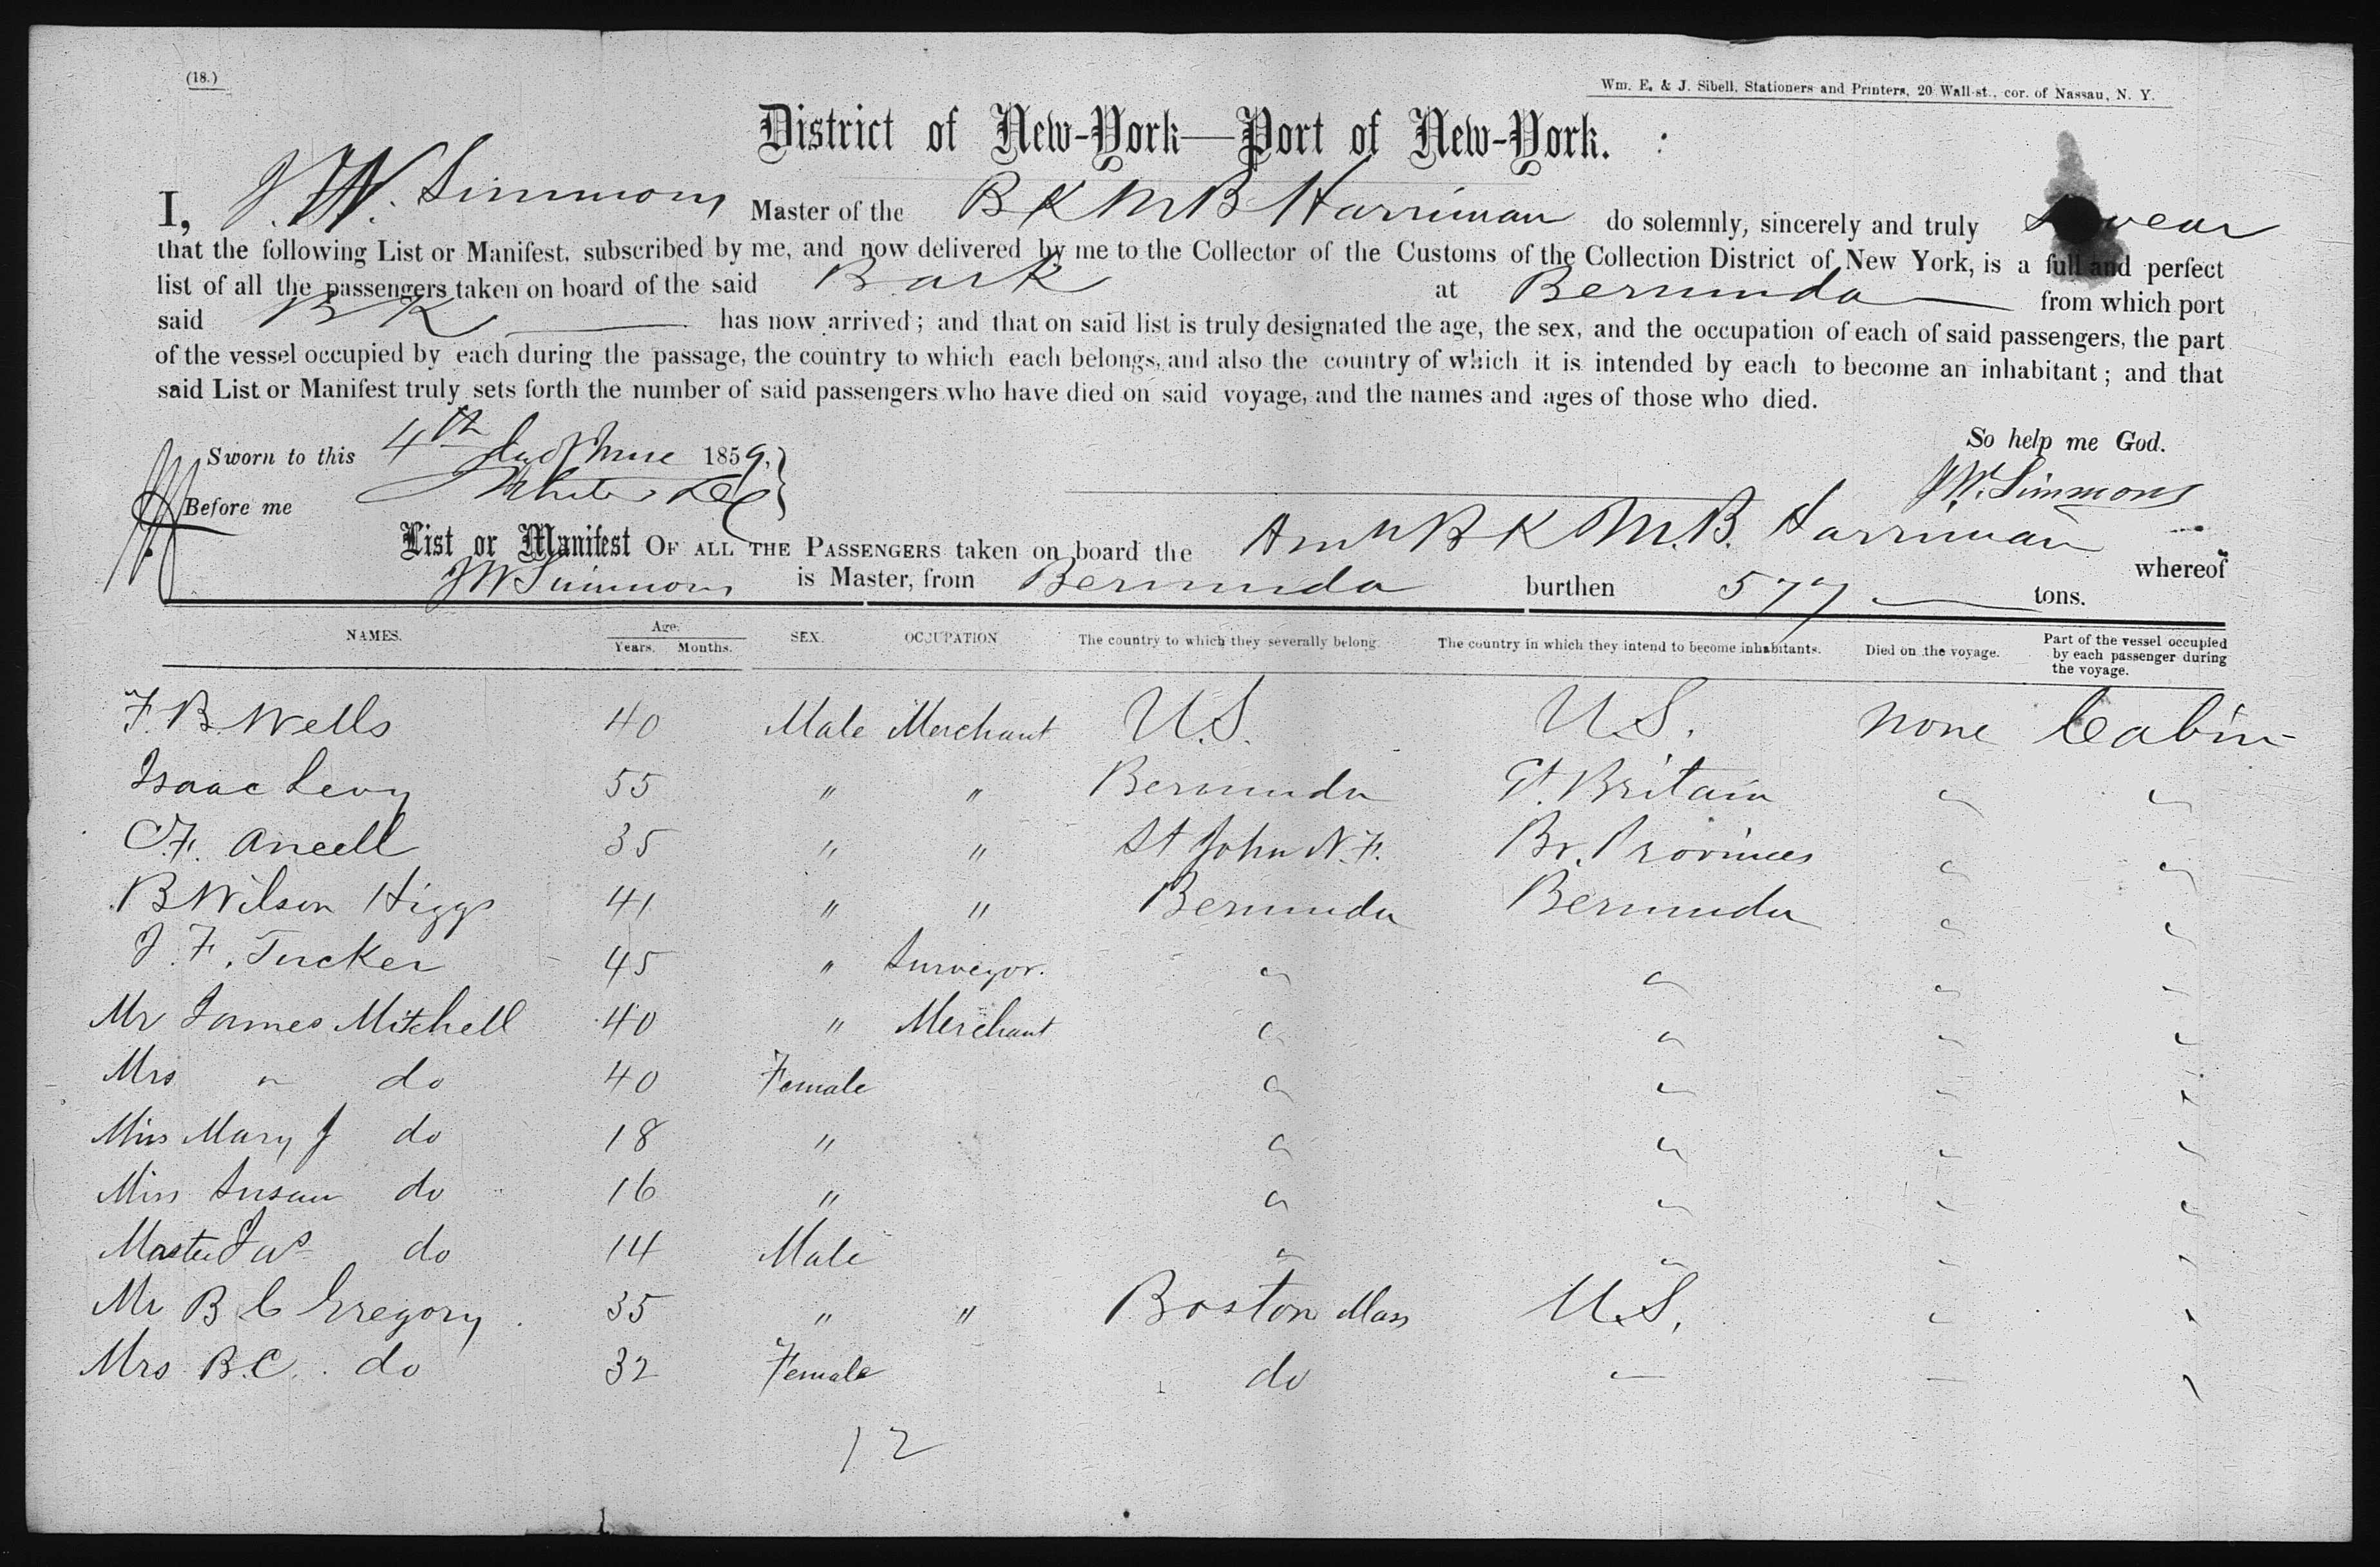 (18.)
Wm. E. & J. Sibell, Stationers and Printers, 20 Wall-st., cor. of Nassau, N. Y.
District of New-York—Port of New-York.
I, J. W. Simmons Master of the BK M B Harriman do solemnly, sincerely and truly swear
that the following List or Manifest, subscribed by me, and now delivered by me to the Collector of the Customs of the Collection District of New York, is a full and perfect
list of all the passengers taken on board of the said Bark at Bermuda from which port
said BK has now arrived; and that on said list is truly designated the age, the sex, and the occupation of each of said passengers, the part
of the vessel occupied by each during the passage, the country to which each belongs, and also the country of which it is intended by each to become an inhabitant; and that
said List or Manifest truly sets forth the number of said passengers who have died on said voyage, and the names and ages of those who died.
Sworn to this 4th day of June 1859, So help me God.
Before me J. W. Simmons
List or Manifest OF ALL THE PASSENGERS taken on board the Amn BK M. B. Harriman whereof
J W Simmons is Master, from Bermuda burthen 577 tons.
NAMES. Age. Years. Months. SEX. OCCUPATION The country to which they severally belong. The country in which they intend to become inhabitants. Died on the voyage. Part of the vessel occupied by each passenger during the voyage.
F. B. Wells 40 Male Merchant U.S. U.S. none Cabin
Isaac Levy 55 " " Bermuda Gt. Britain " "
C. F. Ancell 35 " " St John N. F. Br. Provinces " "
B Wilson Higgs 41 " " Bermuda Bermuda " "
J. F. Tucker 45 " Surveyor. " " " "
Mr James Mitchell 40 " Merchant " " " "
Mrs " do 40 Female " " " "
Miss Mary J do 18 " " " " "
Miss Susan do 16 " " " " "
Master Jas do 14 Male " " " "
Mr B C Gregory 35 " " Boston Mass U.S. " "
Mrs B. C. do 32 Female do " " "
12